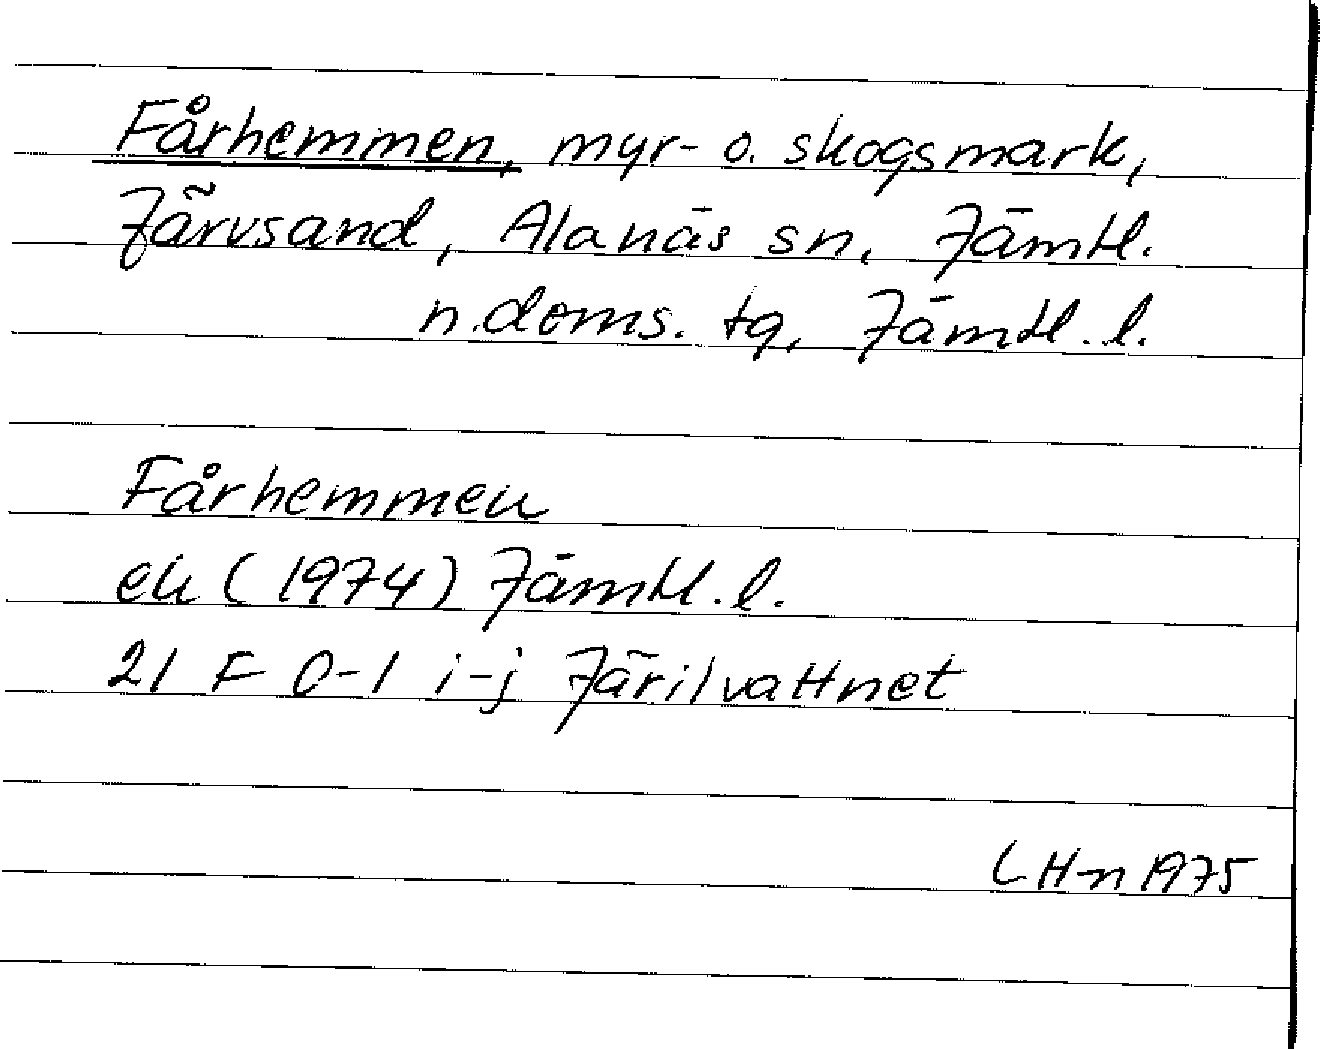 Fårhemmen, myr- o. skogsmark,
Järvsand, Alanäs sn, Jämtl.
n. doms. tg, Jämtl. l.
Fårhemmen
ek (1974) Jämtl. l.
21 F 0-1 i-j Järilvattnet
LH-n 1975